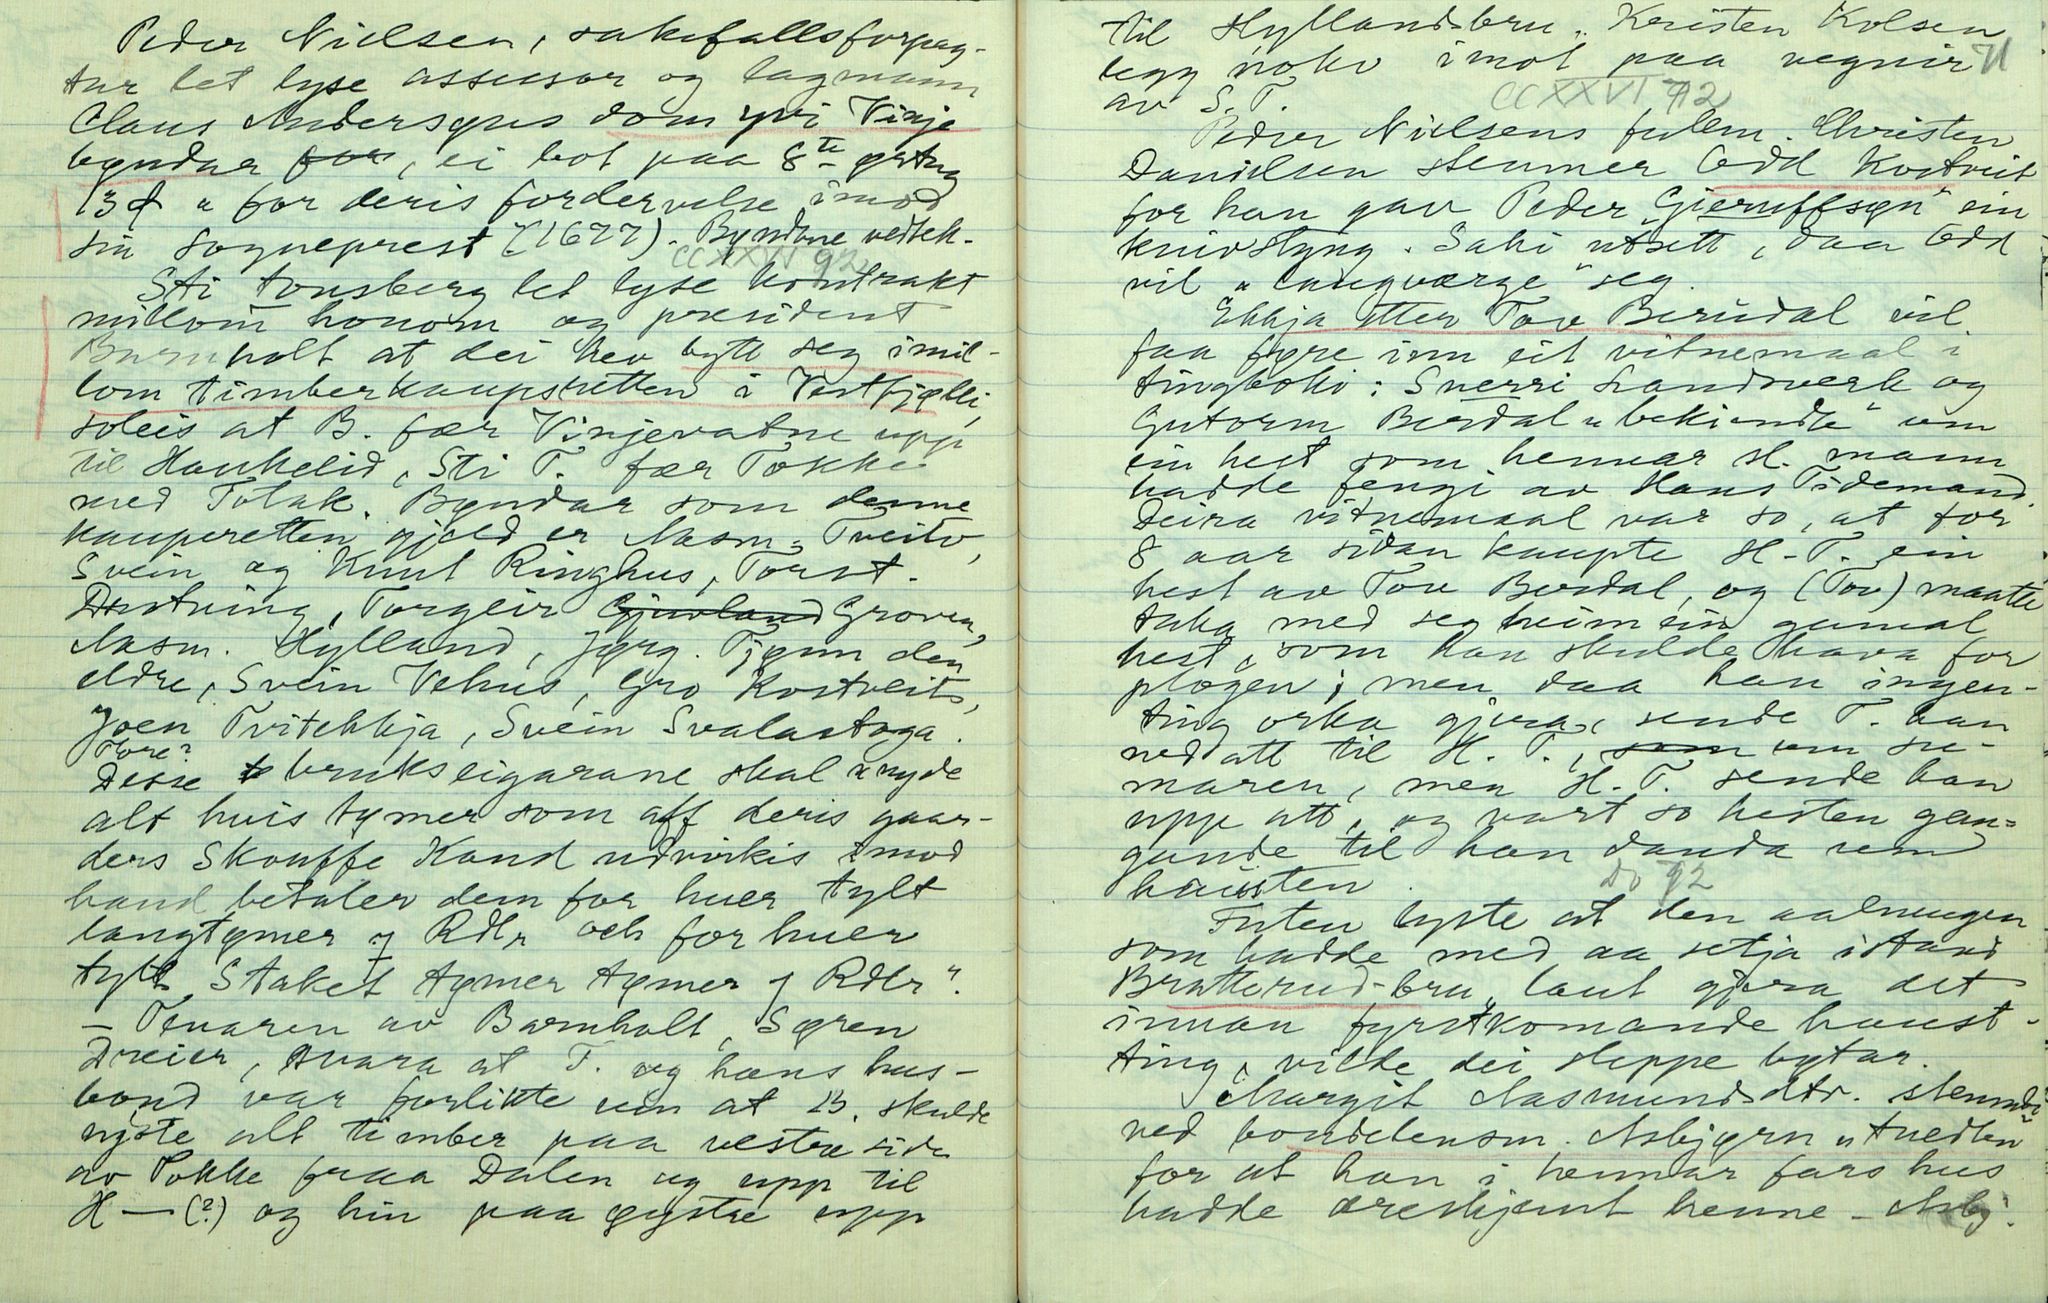 Peder Nielsen, sakefallsforpag-
tar let lyse assessor og lagmann
Claus Andersøns dom yvi Vinje
byndar for, ei bot paa 8 te ørtug
13 ₰ "for deris fordervelse imod
sin sogneprest" (1677). Byndane vedtek.
CCXXVI 92
Sti Tonsberg let lyse kontrakt
millom honom og president
Barnholt at dei hev bytt seg imil-
lom timberkaupsretten i Vestfjølli,
soleis at B. fær Vinjevatne upp
til Haukelid, Sti T. fær Tokke
med Totak. Byndar som denne
kauperetten gjeld er Aasm. Tveito,
Svein og Knut Ringhus, Torst.
Dustning, Torgeir Gjuvland Groven,
Aasm. Hylland, Jørg. Tjønn den
eldre, Svein Vehus, Gro Kostveit,
Joen Tvitekkja, Svein Svalastoga.
Tore?
Desse brukseigarane skal "nyde
alt huis tymer som aff deris gaar-
ders Skouffe Kand udvirkis imod
hand betaler dem for huer tylt
langtømer j Rdlr och for huer
tylt Staket tømer tømer j Rdlr".
— Tenaren av Barnholt, Søren
Dreier, svara at T. og hans hus-
bond var forlikte um at B. skulde
njote alt timber paa vestre side
av Tokke fraa Dalen og upp til
H — (?) og hin paa øystre upp
til Hyllandsbru. Kristen Kolsen
legg noko imot paa vegnir 71
av S. T.
CCXXVI 92
Peder Nielsens fulem. Christen
Danielsen stemner Odd Kostveit
for han gav Peder "Gieruffsøn" ein
knivstyng. Saki utsett, daa Odd
vil "laugværge" seg.
Ekkja etter Tov Berudal vil
faa føre inn eit vitnemaal i
tingboki: Sverri Landsverk og
Gutorm Berdal "bekiende" um
ein hest som hennar sl. mann
hadde fengi av Hans Tidemand.
Deira vitnemaal var so, at for
8 aar sidan kaupte H. T. ein
hest av Tov Berdal, og (Tov) maatte
taka med seg heim ein gamal
hest, som han skulde hava for
plogen; men daa han ingen-
ting orka gjera, sende T. han
ned att til H. T., som um su-
maren, men H. T. sende han
upp att, og vart so hesten gan-
gande til han dauda um
hausten.
Do 92
Futen lyste at den aalmugen
som hadde med aa setja istand
Bratterud-bru, laut gjera det
innan fyrstkomande haust-
ting, vilde dei sleppe bøtar.
Margit Aasmundsdtr. stemnde
ved bondelensm. Asbjørn "Anedtun"
for at han i hennar fars hus
hadde æreskjemt henne – Asbj.